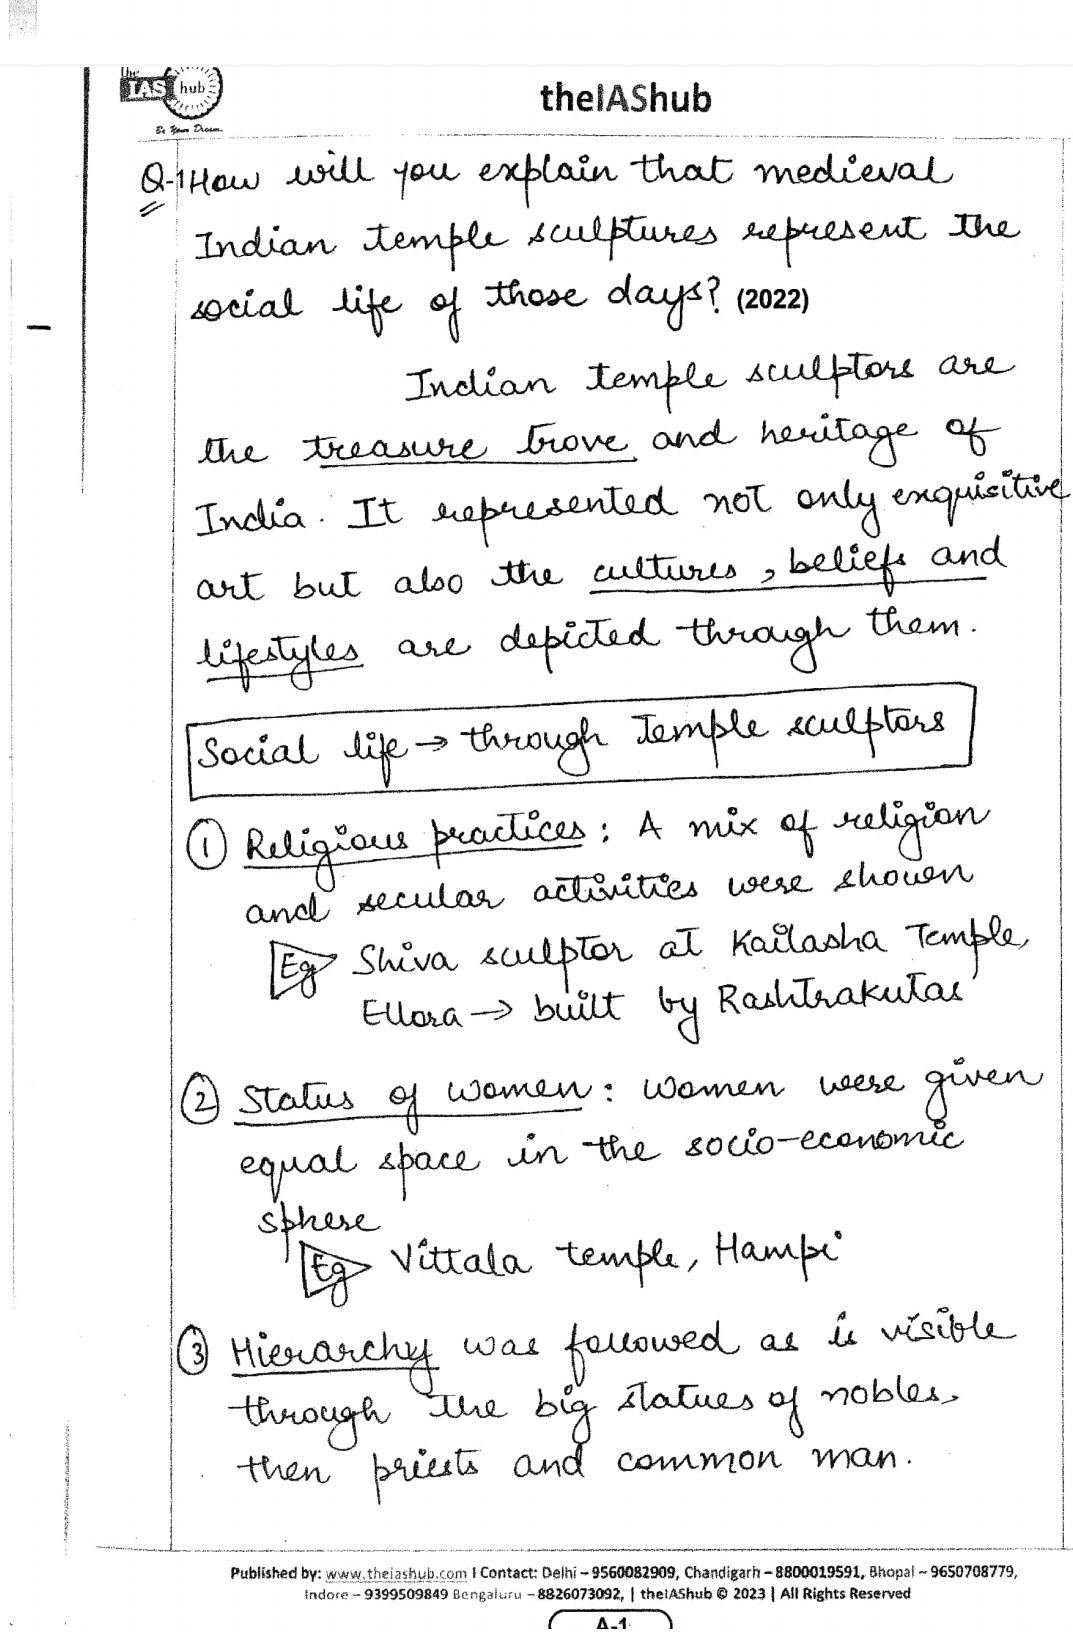 the
IAS hub
Be Your Dream
theIAShub
Q-1 How will you explain that medieval
Indian temple sculptures represent the
social life of those days? (2022)
Indian temple sculptors are
the treasure trove and heritage of
India. It represented not only exquisitive
art but also the cultures, beliefs and
lifestyles are depicted through them.
Social life → through Temple sculptors
① Religious practices : A mix of religion
and secular activities were shown
Eg Shiva sculptor at Kailasha Temple,
Ellora → built by Rashtrakutas
② Status of women : Women were given
equal space in the socio-economic
sphere
Eg Vittala temple, Hampi
③ Hierarchy was followed as is visible
through the big statues of nobles,
then priests and common man.
Published by: www.theiashub.com I Contact: Delhi – 9560082909, Chandigarh – 8800019591, Bhopal – 9650708779,
Indore – 9399509849 Bengaluru – 8826073092, | theIAShub © 2023 | All Rights Reserved
A-1